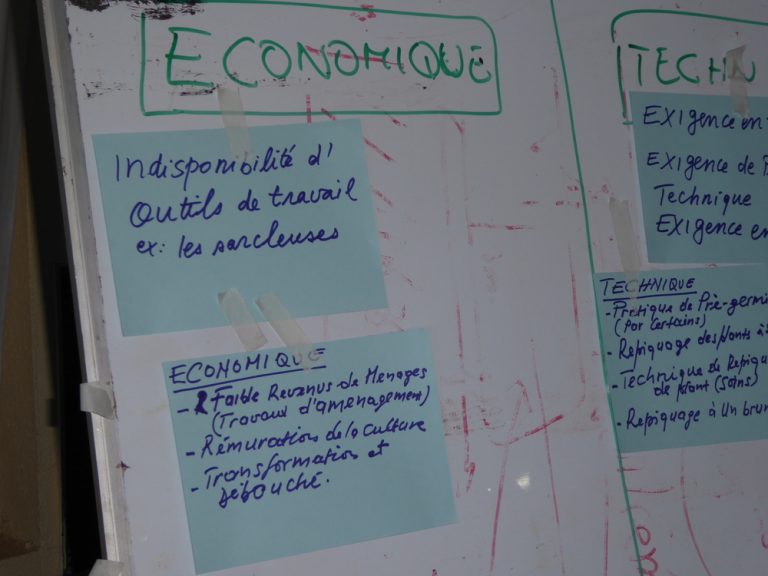 ECONOMIQUE
Indisponibilité d'
Outils de travail
ex: les sarcleuses
ECONOMIQUE
- Faible Revenus de Menages
(Travaux d'aménagement)
- Rémuration de la culture
- Transformation et
Débouché.
TECHN
EXIgence en
EXIgence de
Technique
EXIgence en
TECHNIQUE
- Pratique de Pré-germi
(par certains)
- Repiquage des plants à
- Technique de Repiqu
de plant (Soins)
- Repiquage à Un brun